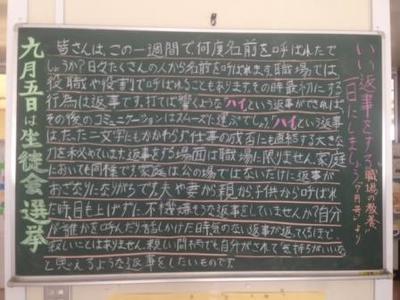 いい返事をする
一日にしましょう
職場の教養
(7月号)より
皆さんは、この一週間で何度名前を呼ばれたで
しょうか?日々たくさんの人から名前を呼ばれます。職場では
役職や役割で呼ばれることもあります。その時最初にする
行為は返事です。打てば響くような「ハイ」という返事ができれば、
その後のコミュニケーションはスムーズに運ぶでしょう「ハイ」という返事
はたった二文字にもかかわらず仕事の成否にも直結する大きな
力を秘めています。返事をする場面は職場に限りません。家庭
においても同様です。家庭は公の場ではないだけに返事が
おざなりになりがちです。夫や妻から、親から、子供から呼ばれ
た時、目も上げずに不機嫌そうな返事をしていませんか?自分
が誰かを呼んだり話しかけた時気のない返事が返ってくるほど
寂しいことはありません。親しい間柄でも自分がされて「気持ちがいいな」
と思えるような返事をしたいものです。
九月五日は生徒会選挙